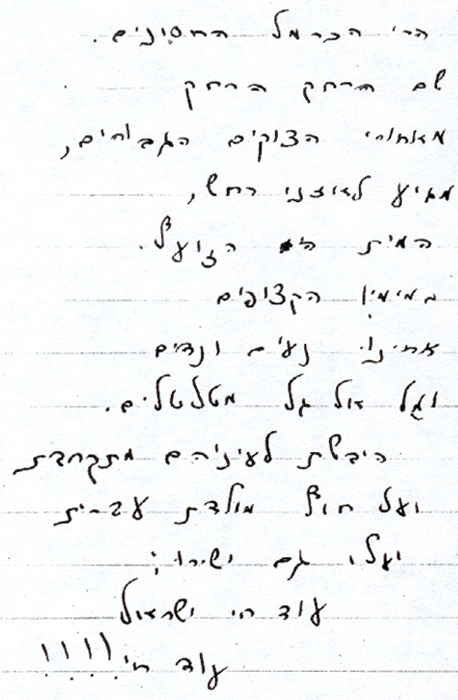 הרי הכרמל החסונים.
שם הרחק הרחק
מאחורי הצוקים הגבוהים,
מגיע לאוזני רחש,
המית הזועל.
במימיו הקצופים
אחינו נעים ונדים
וגל אל גל מטלטלים.
היבשת לעיניהם מתקרבת
ועל חוף מולדת עברית
יעלו גם ישירו:
עוד חי ישראל
עוד חי!!!!